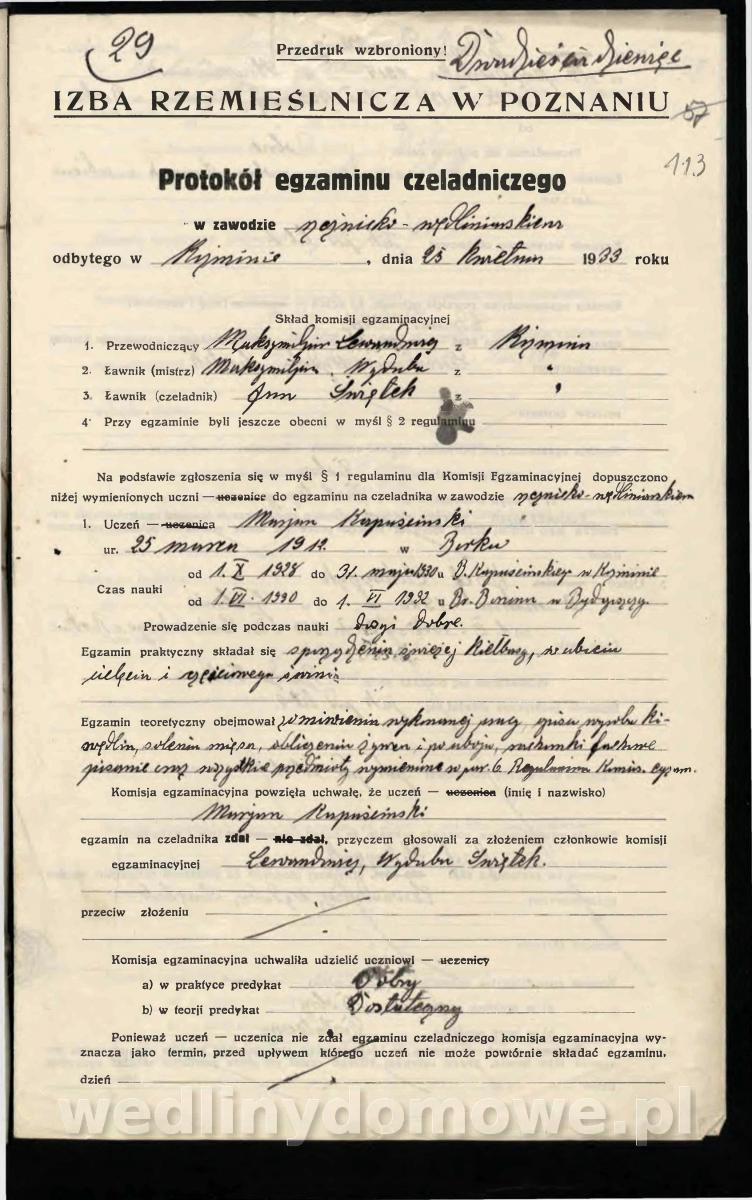 29
Przedruk wzbroniony!
Dwadzieścia dziewięć
IZBA RZEMIEŚLNICZA W POZNANIU
57
113
Protokół egzaminu czeladniczego
w zawodzie rzeźnicko-wędliniarskiem
odbytego w , dnia 25 kwietnia 1933 roku
Skład komisji egzaminacyjnej
1. Przewodniczący Maksymiljan z
2. Ławnik (mistrz) Maksymiljan Wyduba z "
3. Ławnik (czeladnik) Jan Świętek z "
4. Przy egzaminie byli jeszcze obecni w myśl § 2 regulaminu
Na podstawie zgłoszenia się w myśl § 1 regulaminu dla Komisji Egzaminacyjnej dopuszczono
niżej wymienionych uczni — uczenice do egzaminu na czeladnika w zawodzie rzeźnicko-wędliniarskiem
1. Uczeń — uczenica Marjan Kapuściński
ur. 25 marca 1912 w Borku
od 1. X 1928 do 31. maja 1930 u B. Kapuścińskiego w
Czas nauki
od 1. VI. 1930 do 1. VI 1932 u Br. w Bydgoszczy.
Prowadzenie się podczas nauki dobre.
Egzamin praktyczny składał się świeżej kiełbasy, w ubiciu
cielęcia i częściowego świni
Egzamin teoretyczny obejmował omówienia wykonanej pracy opisu wyrobu ki-
wędlin, solenia mięsa, obliczenia żywca i po uboju, rachunki fachowe
pisanie oraz wszystkie przedmioty wymienione w par. 6. Regulaminu Komis. egzam.
Komisja egzaminacyjna powzięła uchwałę, że uczeń — uczenica (imię i nazwisko)
Marjan Kapuściński
egzamin na czeladnika zdał — nie zdał, przyczem głosowali za złożeniem członkowie komisji
egzaminacyjnej Wyduba Świętek.
przeciw złożeniu
Komisja egzaminacyjna uchwaliła udzielić uczniowi — uczenicy
a) w praktyce predykat Dobry
b) w teorji predykat Dostateczny
Ponieważ uczeń — uczenica nie zdał egzaminu czeladniczego komisja egzaminacyjna wy-
znacza jako termin, przed upływem którego uczeń nie może powtórnie składać egzaminu,
dzień
wedlinydomowe.pl